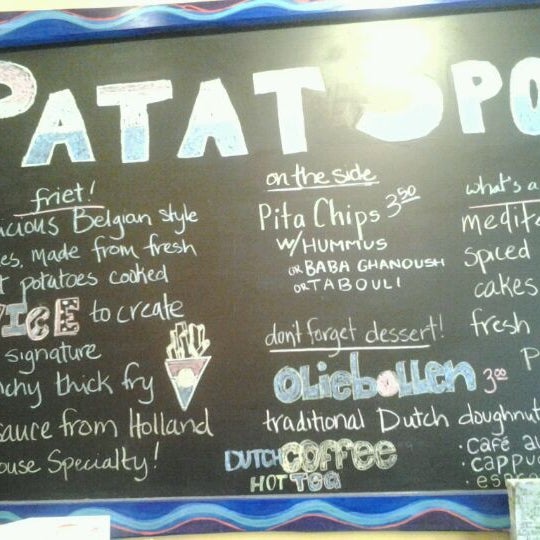 PATAT SPO
friet!
icious Belgian style
es, made from fresh
t potatoes cooked
WICE to create
signature
nchy thick fry
sauce from Holland
ouse Specialty!
on the side
Pita Chips 3.50
w/HUMMUS
or BABA GHANOUSH
or TABOULI
don't forget dessert!
Oliebollen 3.00
traditional Dutch doughnut
DUTCH COFFEE
HOT TEA
what's a
medite
spiced
cakes
fresh
P
• café au
• cappuc
• espre